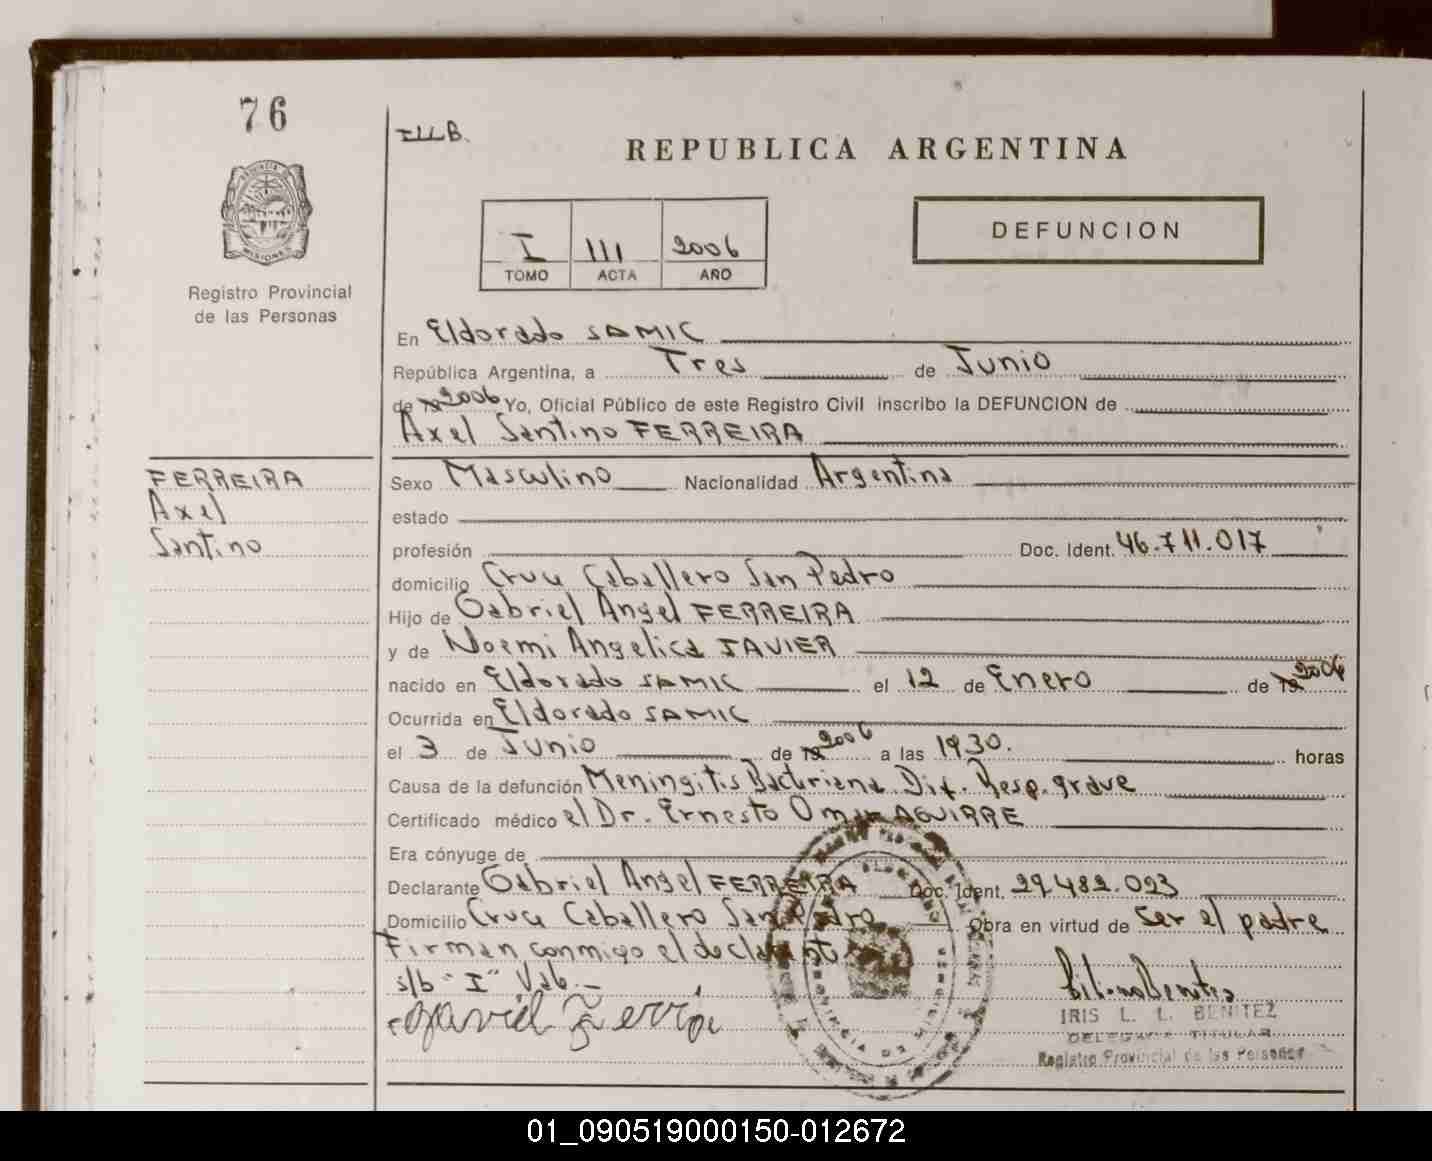 76
III B.
REPUBLICA ARGENTINA
PROVINCIA DE
MISIONES
I 111 2006
TOMO ACTA AÑO
DEFUNCION
Registro Provincial
de las Personas
En Eldorado SAMIC
República Argentina, a Tres de Junio
de 19 2006 Yo, Oficial Público de este Registro Civil inscribo la DEFUNCION de
Axel Santino FERREIRA
FERREIRA
Axel
Santino
Sexo Masculino Nacionalidad Argentina
estado
profesión Doc. Ident. 46.711.017
domicilio Cruce Caballero San Pedro
Hijo de Gabriel Angel FERREIRA
y de Noemi Angelica JAVIER
nacido en Eldorado SAMIC el 12 de Enero de 19 2006
Ocurrida en Eldorado SAMIC
el 3 de Junio de 19 2006 a las 19 30. horas
Causa de la defunción Meningitis Bacteriana. Dif. Resp. grave
Certificado médico el Dr. Ernesto Omar AGUIRRE
Era cónyuge de
Declarante Gabriel Angel FERREIRA Doc. Ident. 29.482.023
Domicilio Cruce Caballero San Pedro Obra en virtud de ser el padre
Firman conmigo el declarante
s/b "I" Vale.-
IRIS L. L. BENITEZ
DELEGADA TITULAR
Registro Provincial de las Personas
01_090519000150-012672